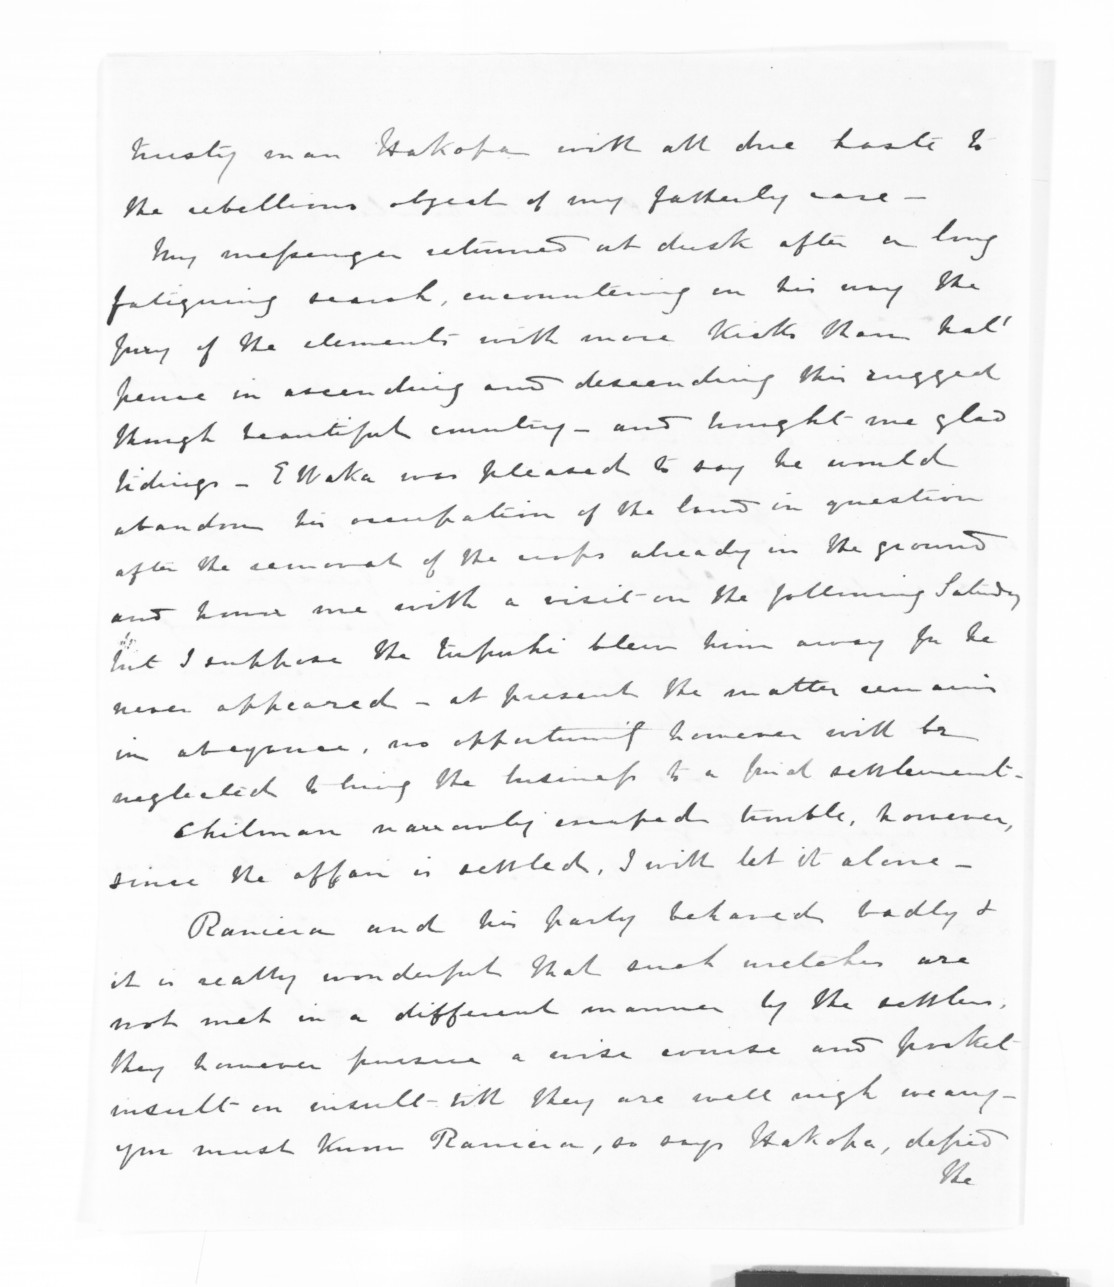 trusty man Hakopa with all due haste to
the rebellious object of my fatherly care –
My messenger returned at dusk after a long
fatiguing search, encountering on his way the
fury of the elements with more kicks than hal'
pence in ascending and descending this rugged
though beautiful country – and brought me glad
tidings – E Waka was pleased to say he would
abandon his occupation of the land in question
after the removal of the crops already in the ground
and honor me with a visit on the following Saturday
but I suppose the tupuhi blew him away for he
never appeared – at present the matter remains
in abeyance, no opportunity however will be
neglected to bring the business to a final settlement –
Chilman narrowly escaped trouble, however,
since the affair is settled, I will let it alone –
Raniera and his party behaved badly &
it is really wonderful that such wretches are
not met in a different manner by the settlers,
they however pursue a wise course and pocket
insult on insult till they are well nigh weary –
you must know Raniera, so says Hakopa, defied
the